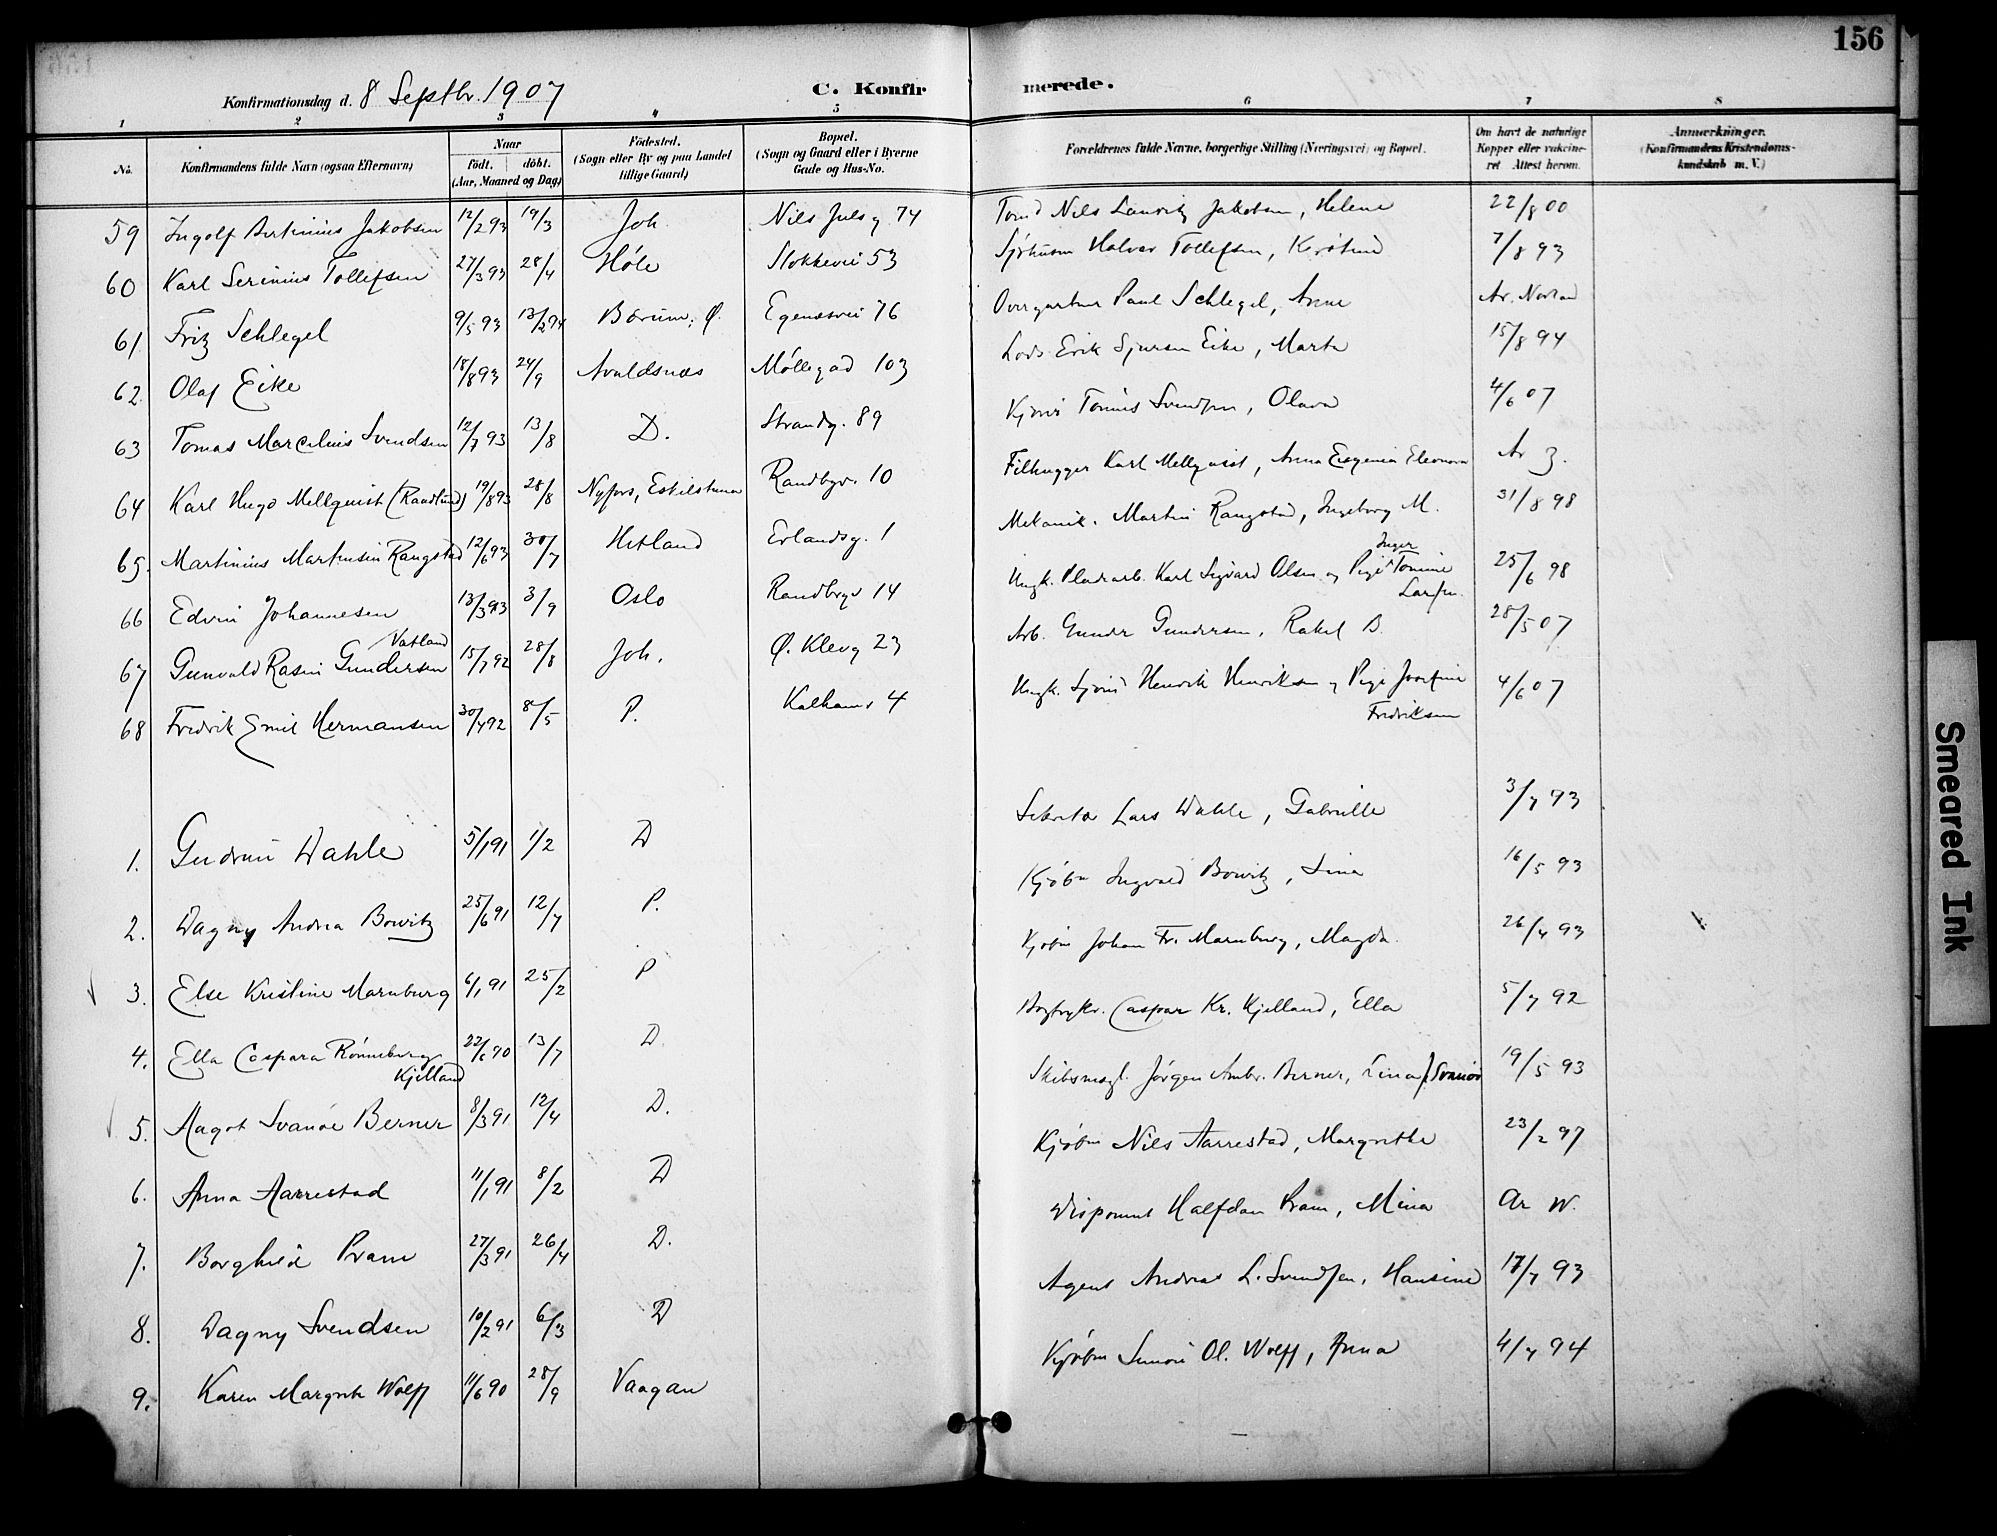 156
Konfirmationsdag d. 8 Septbr. 1907
C. Konfirmerede.
1 2 3 4 5 6 7 8
No.
Konfirmandens fulde Navn (ogsaa Efternavn)
Naar
födt. döbt.
(Aar, Maaned og Dag)
Födested.
(Sogn eller By og paa Landet tillige Gaard)
Bopæl.
(Sogn og Gaard eller i Byerne Gade og Hus-No.
Forældrenes fulde Navne, borgerlige Stilling (Næringsvei) og Bopæl.
Om havt de naturlige Kopper eller vakcineret Attest herom.
Anmærkninger.
(Konfirmandens Kristendomskundskab m. V.)
59 Ingolf Bertinius Jakobsen 12/2 93 19/3 Joh. Nils Juels g. 74 Nils Lauritz Jakobsen, Helene 22/8 00
60 Karl Serinius Tollefsen 27/3 93 28/4 Høle Stokkevei 53 Halvor Tollefsen, Kirstine 7/8 93
61. Friz Schlegel 9/5 93 13/2 94 Bærum, Ø. Egenæsvei 76 Overgartner Paul Schlegel, Anne
62. Olaf Eike 18/8 93 24/9 Avaldsnæs Møllegad 103 Lods Erik Sjursen Eike, Marta 15/8 94
63 Tomas Marcelius Svendsen 12/7 93 13/8 D. Strandg. 89 Tønnes Svendsen, Olava 4/6 07
64 Karl Hugo Mellquist (Randlund) 19/8 93 28/8 Nyfors, Eskilstuna Randbgv. 10 Filhugger Karl Mellquist, Anna Eugenia Eleonora
65. Martinius Martinsen Rangstad 12/6 93 30/7 Hetland Erlandsg. 1 Mekanik. Martin Rangstad, Ingeborg M. 31/8 98
66 Edvin Johannesen 13/3 93 3/9 Oslo Randbgv 14 Ungk. Karl Sigvard Olsen og Pige Inger Tomine Larsen 25/6 98
67 Gunvald Rasin Gundersen Vatland 15/7 92 28/8 Joh. Ø. Klevg 23 Arb. Gunder Gundersen, Rakel B. 28/5 07
68 Fredrik Emil Hermansen 30/4 92 8/5 P. Kalhamr 4 Ungk. Henrik Henriksen og Pige Josefine Fredriksen 4/6 07
1. Gudrun Dahle 5/1 91 1/2 D Lars Dahle, Gabrielle 3/7 93
2. Dagny Andrea Bowitz 25/6 91 12/7 P. Kjøbm Ingvald Bowitz, Lina 16/5 93
3. Else Kristine Marnburg 6/1 91 25/2 P Kjøbm Johan Fr. Marnburg, Magda 26/7 93
4. Ella Caspara Rønneberg Kjelland 22/6 90 13/7 D. Bogtrykr. Caspar Kr. Kjelland, Ella 5/7 92
5. Aagot Svanøe Berner 8/3 91 12/4 D. Skibsmægl. Jørgen Ambr. Berner, Lina f. Svanøe 19/5 93
6. Anna Aarrestad 11/1 91 8/2 D Kjøbm Nils Aarrestad, Margrethe 23/2 97
7. Borghild Pram 27/3 91 26/4 D. Disponent Halfdan Pram, Mina Ar W.
8. Dagny Svendsen 10/2 91 6/3 D Agent Andreas L. Svendsen, Hansine 17/7 93
9. Karen Margrete Wolff 11/6 90 28/9 Vaagan Kjøbm Simon Ol. Wolff, Anna 4/7 94
Smeared Ink